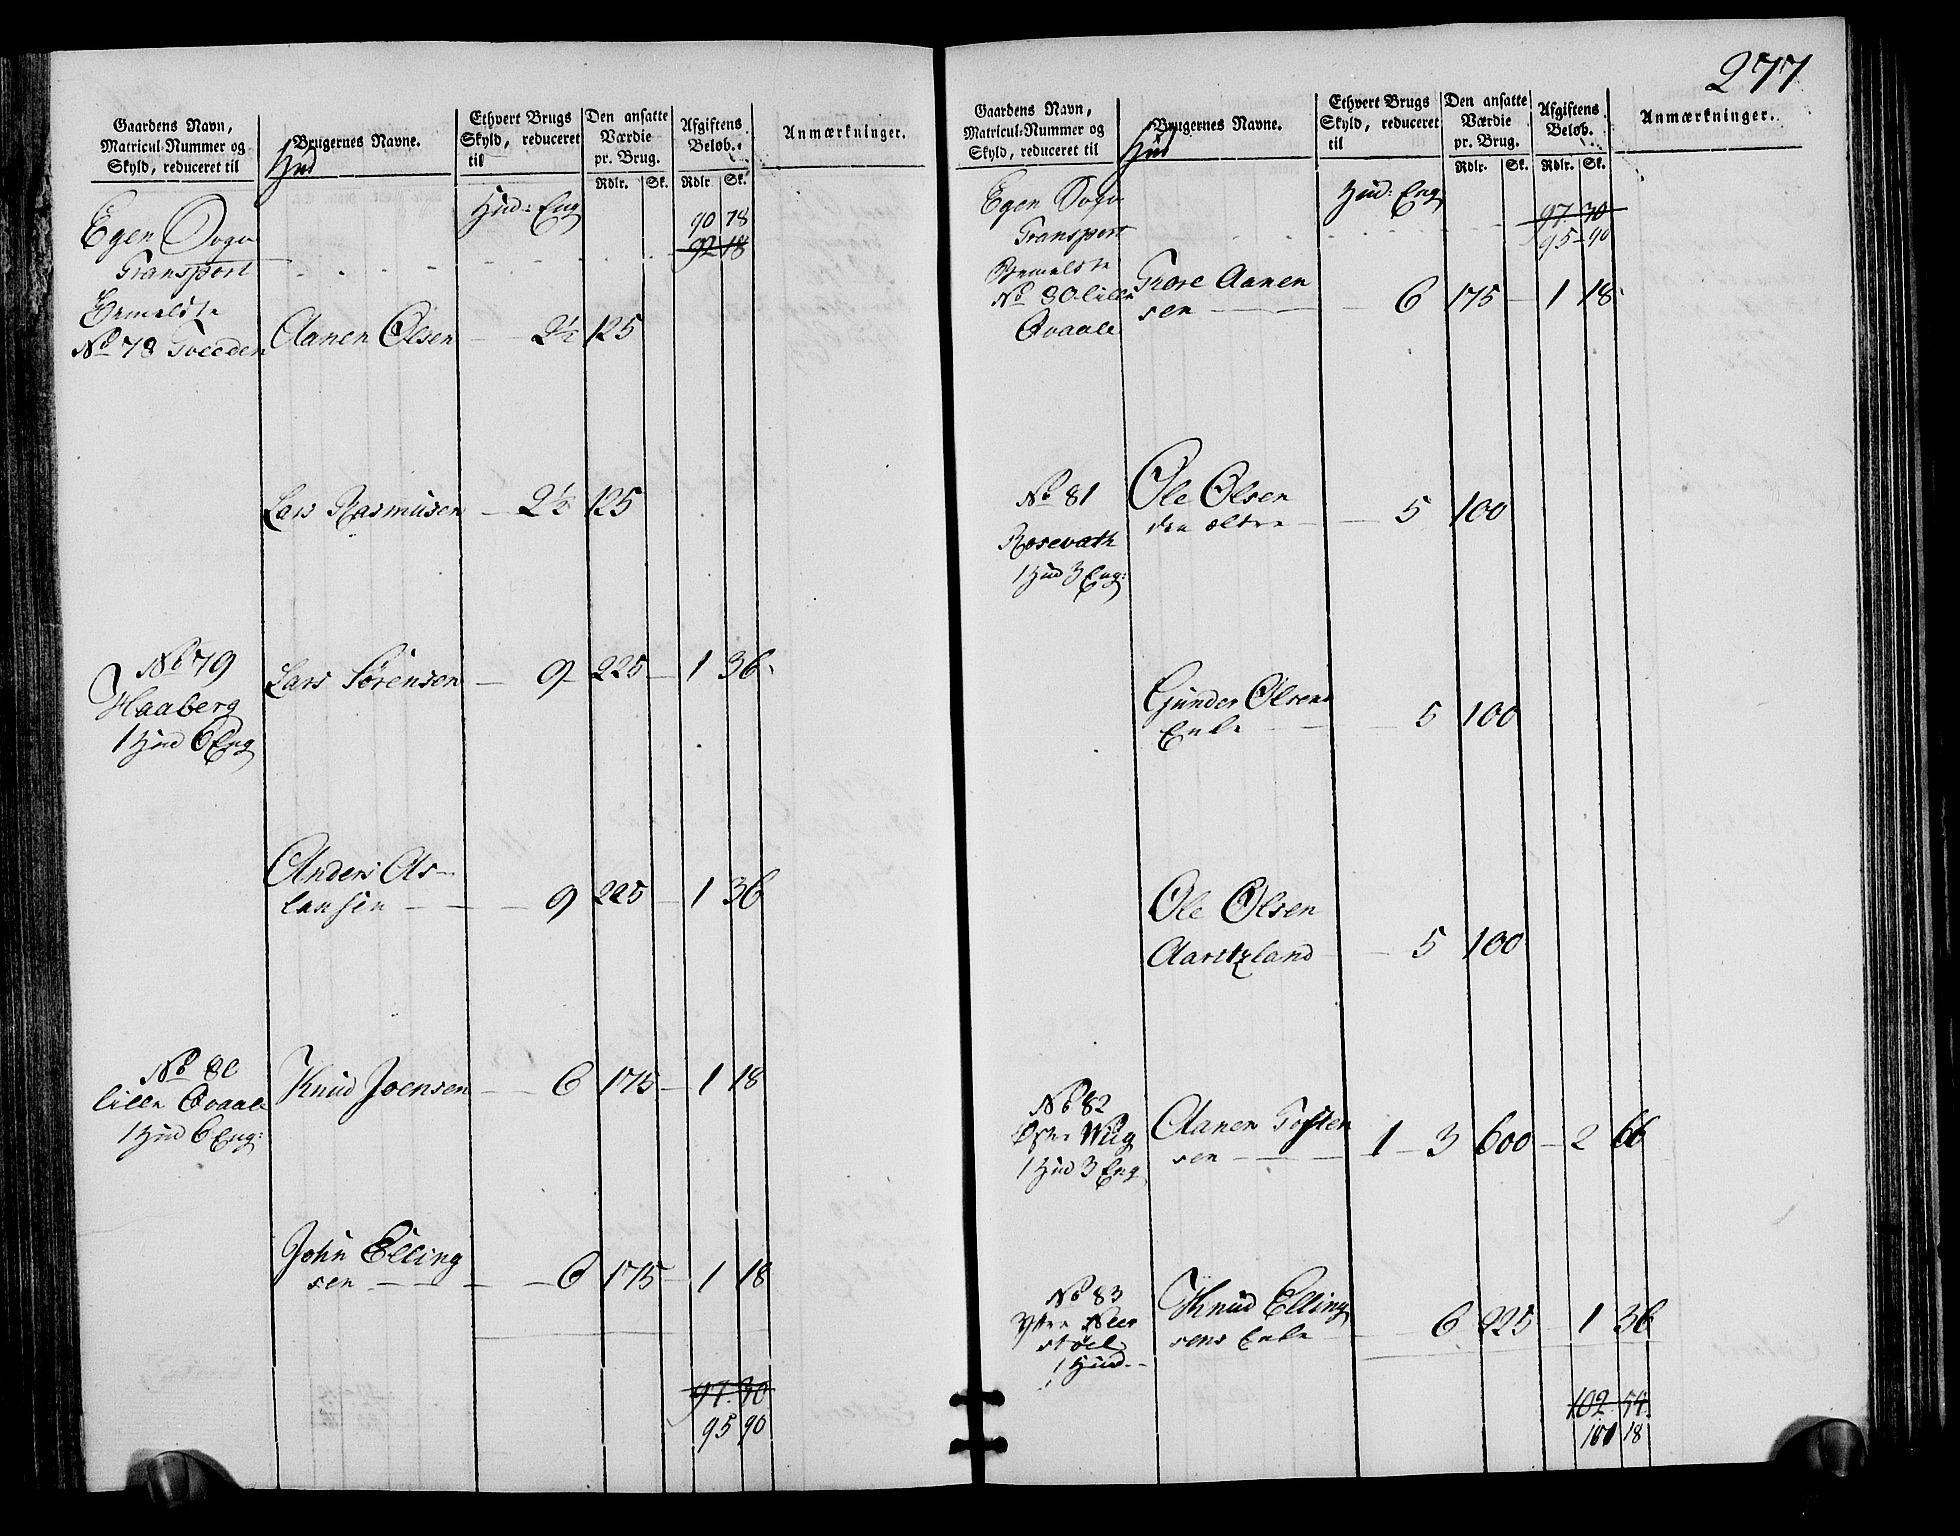 Gaardens Navn,
Matricul-Nummer og
Skyld, reduceret til
Brugernes Navne.
Hud
Ethvert Brugs
Skyld, reduceret
til
Den ansatte
Værdie
pr. Brug.
Rdlr. Sk.
Afgiftens
Beløb.
Rdlr Sk.
Anmærkninger.
Egen Sogn Hud: Eng 90 78
Transport 92 18
No 78 Tveeden Aanen Olsen 2½ 125
Lars Rasmusen 2½ 125
No 79
Haaberg Lars Sørensen 9 225 1 36
1 Hud 6 Eng
Anders As-
lansen 9 225 1 36
No 80
lille Qvaale Knud Joensen 6 175 1 18
1 Hud 6 Eng:
John Elling
sen 6 175 1 18
97 30
95 90
277
Gaardens Navn,
Matricul-Nummer og
Skyld, reduceret til
Brugernes Navne.
Hud
Ethvert Brugs
Skyld, reduceret
til
Den ansatte
Værdie
pr. Brug.
Rdlr. Sk.
Afgiftens
Beløb.
Rdlr. Sk.
Anmærkninger.
Egen Sogn Hud: Eng 97 30
Transport 95 90
No 80 lille Tore Aanen
Qvaale sen 6 175 1 18
No 81 Ole Olsen
Rosevath den ældre 5 100
1 Hud 3 Eng:
Gunder Olsens
Enke 5 100
Ole Olsen
Aaritzland 5 100
No 82
Øster Wiig Aanen Tosten
1 Hud 3 Eng sen 1 3 600 2 66
No 83 Knud Elling
sens Enke 6 225 1 36
1 Hud
102 54
101 18